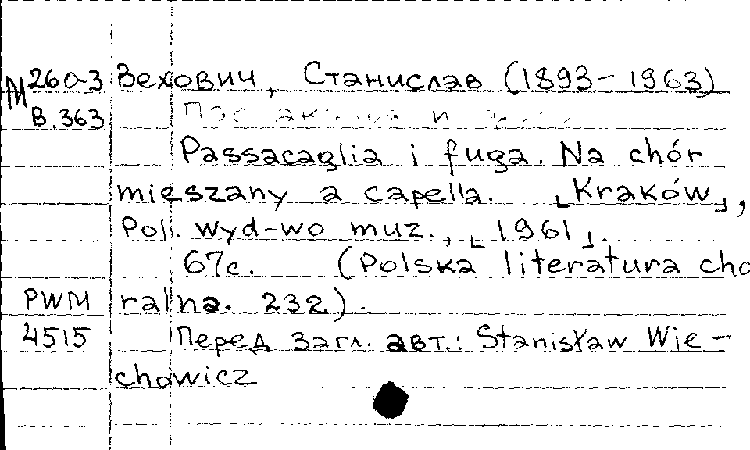 М 260-3 Вехович, Станислав (1893-1963)
В.363
Passacaglia i fuga. Na chór
mieszany a capella. [Kraków],
Pol. wyd-wo muz., [1961].
67с. (Polska literatura cho
PWM ralna. 232).
4515 Перед загл. авт.: Stanisław Wie-
chowicz